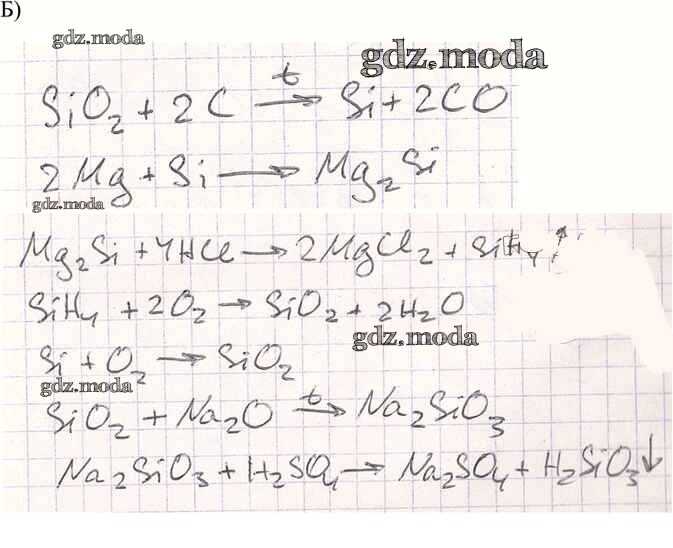 Б)
gdz.moda
gdz.moda
SiO₂ + 2C —t→ Si + 2CO
2Mg + Si ⟶ Mg₂Si
gdz.moda
Mg₂Si + 4HCl → 2MgCl₂ + SiH₄↑
SiH₄ + 2O₂ → SiO₂ + 2H₂O
gdz.moda
Si + O₂ → SiO₂
gdz.moda
SiO₂ + Na₂O —t→ Na₂SiO₃
Na₂SiO₃ + H₂SO₄ → Na₂SO₄ + H₂SiO₃↓